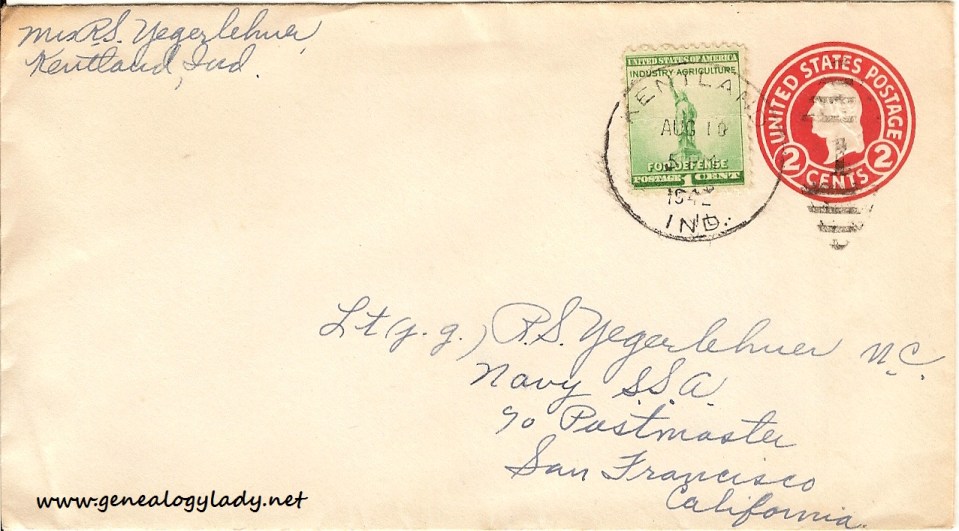 Mrs R.S. Yegerlehner
Kentland, Ind.
UNITED STATES OF AMERICA
INDUSTRY AGRICULTURE
FOR DEFENSE
POSTAGE 1 CENT
KENTLAND
AUG 10
1942
IND.
UNITED STATES POSTAGE
2 CENTS 2
Lt (j.g.) R.S. Yegerlehner N.C.
Navy S.S.A.
c/o Postmaster
San Francisco
California.
www.genealogylady.net